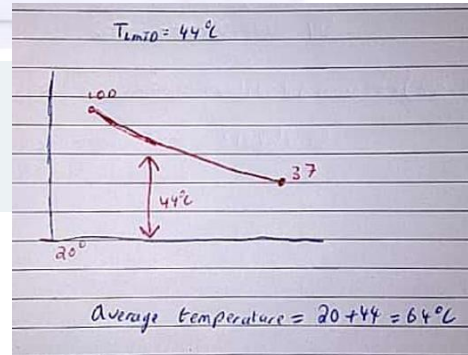 TLMTD = 44°C
100
37
44°C
20°
Average temperature = 20+44 = 64°C